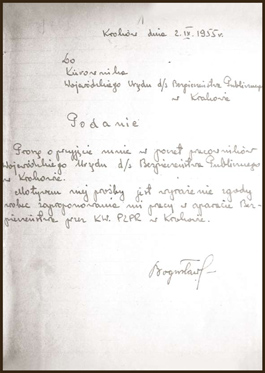 Kraków dnia 2.IX.1955r.
Do
Kierownika
Wojewódzkiego Urzędu d/s Bezpieczeństwa Publicznego
w Krakowie
Podanie
Proszę o przyjęcie mnie w poczet pracowników
Wojewódzkiego Urzędu d/s Bezpieczeństwa Publicznego
w Krakowie.
Motywem mej prośby jest wyrażenie zgody
wobec zaproponowania mi pracy w aparacie Bez-
pieczeństwa przez KW. PZPR w Krakowie.